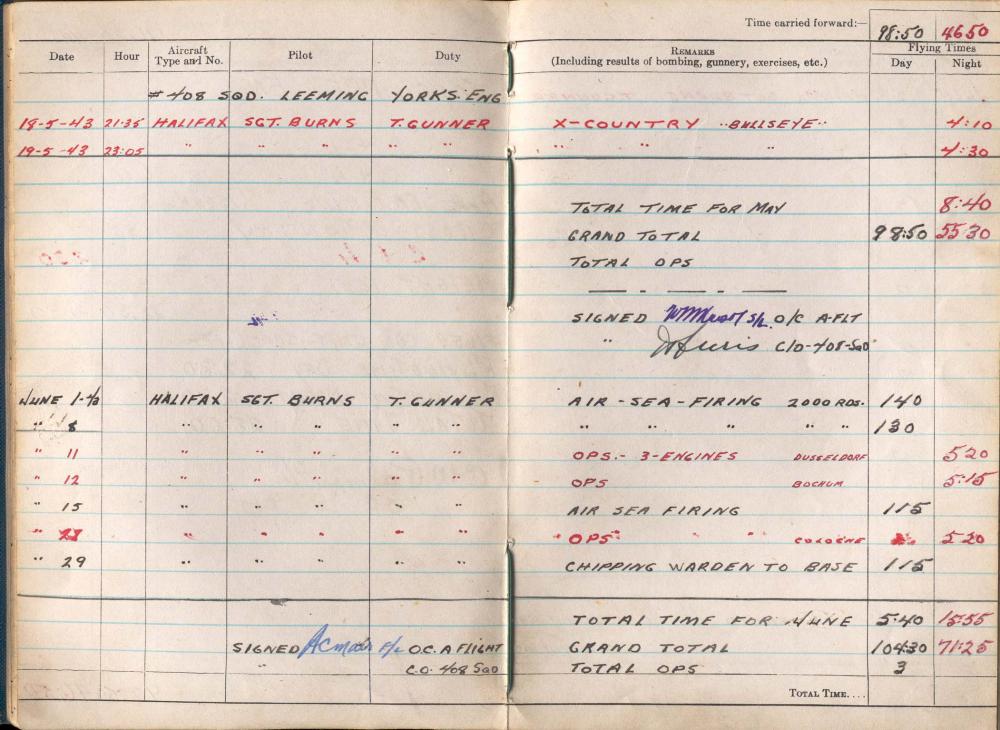 Time carried forward:— 98:50 46 50
Date Hour Aircraft Type and No. Pilot Duty Remarks (Including results of bombing, gunnery, exercises, etc.) Flying Times Day Night
# 408 SQD. LEEMING YORKS. ENG
18-5-43 21:35 HALIFAX SGT. BURNS T. GUNNER X-COUNTRY "BULLSEYE" 4:10
19-5-43 23:05 " " " " " " " " 4:30
TOTAL TIME FOR MAY 8:40
GRAND TOTAL 98:50 55 30
TOTAL OPS
SIGNED S/L O/C A-FLT
" C/O-408-SQD
JUNE 1-43 HALIFAX SGT. BURNS T. GUNNER AIR-SEA-FIRING 2000 RDS. 1 40
" 8 " " " " " " " " " " 1 30
" 11 " " " " " OPS.- 3-ENGINES DUSSELDORF 5 20
" 12 " " " " " OPS BOCHUM 5:15
" 15 " " " " " AIR SEA FIRING 1 15
" " " " " " " OPS " " COLOGNE 5 20
" 29 " " " " " CHIPPING WARDEN TO BASE 1 15
TOTAL TIME FOR JUNE 5:40 15:55
SIGNED F/L O.C. A FLIGHT GRAND TOTAL 104:30 71:25
" C.O. 408 SQD TOTAL OPS 3
Total Time....